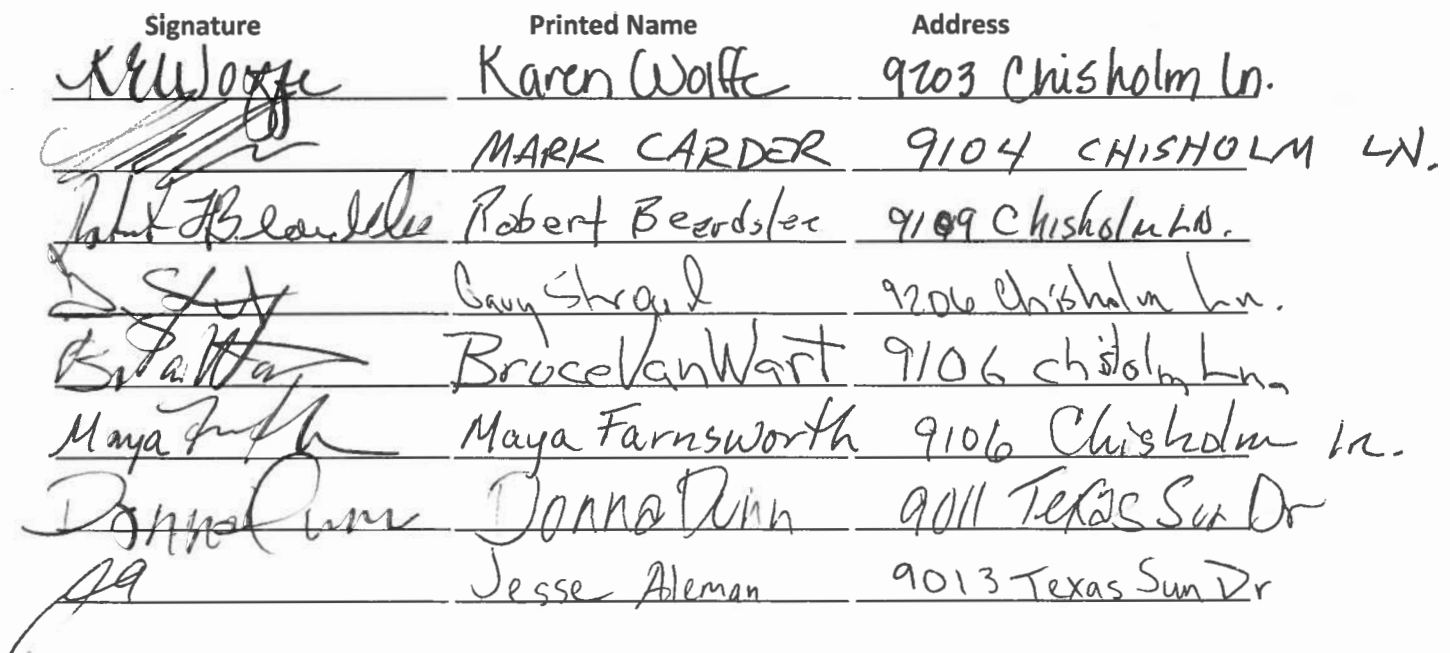 Signature Printed Name Address
KEWolffe Karen Wolffe 9203 Chisholm Ln.
MARK CARDER 9104 CHISHOLM LN.
Robert Beardslee 9109 Chisholm LN.
Gary 9206 Chisholm Ln.
Bruce Van Wart 9106 Chisholm Ln.
Maya Maya Farnsworth 9106 Chisholm Ln.
Donna Dunn Donna Dunn 9011 Texas Sun Dr
Jesse Aleman 9013 Texas Sun Dr